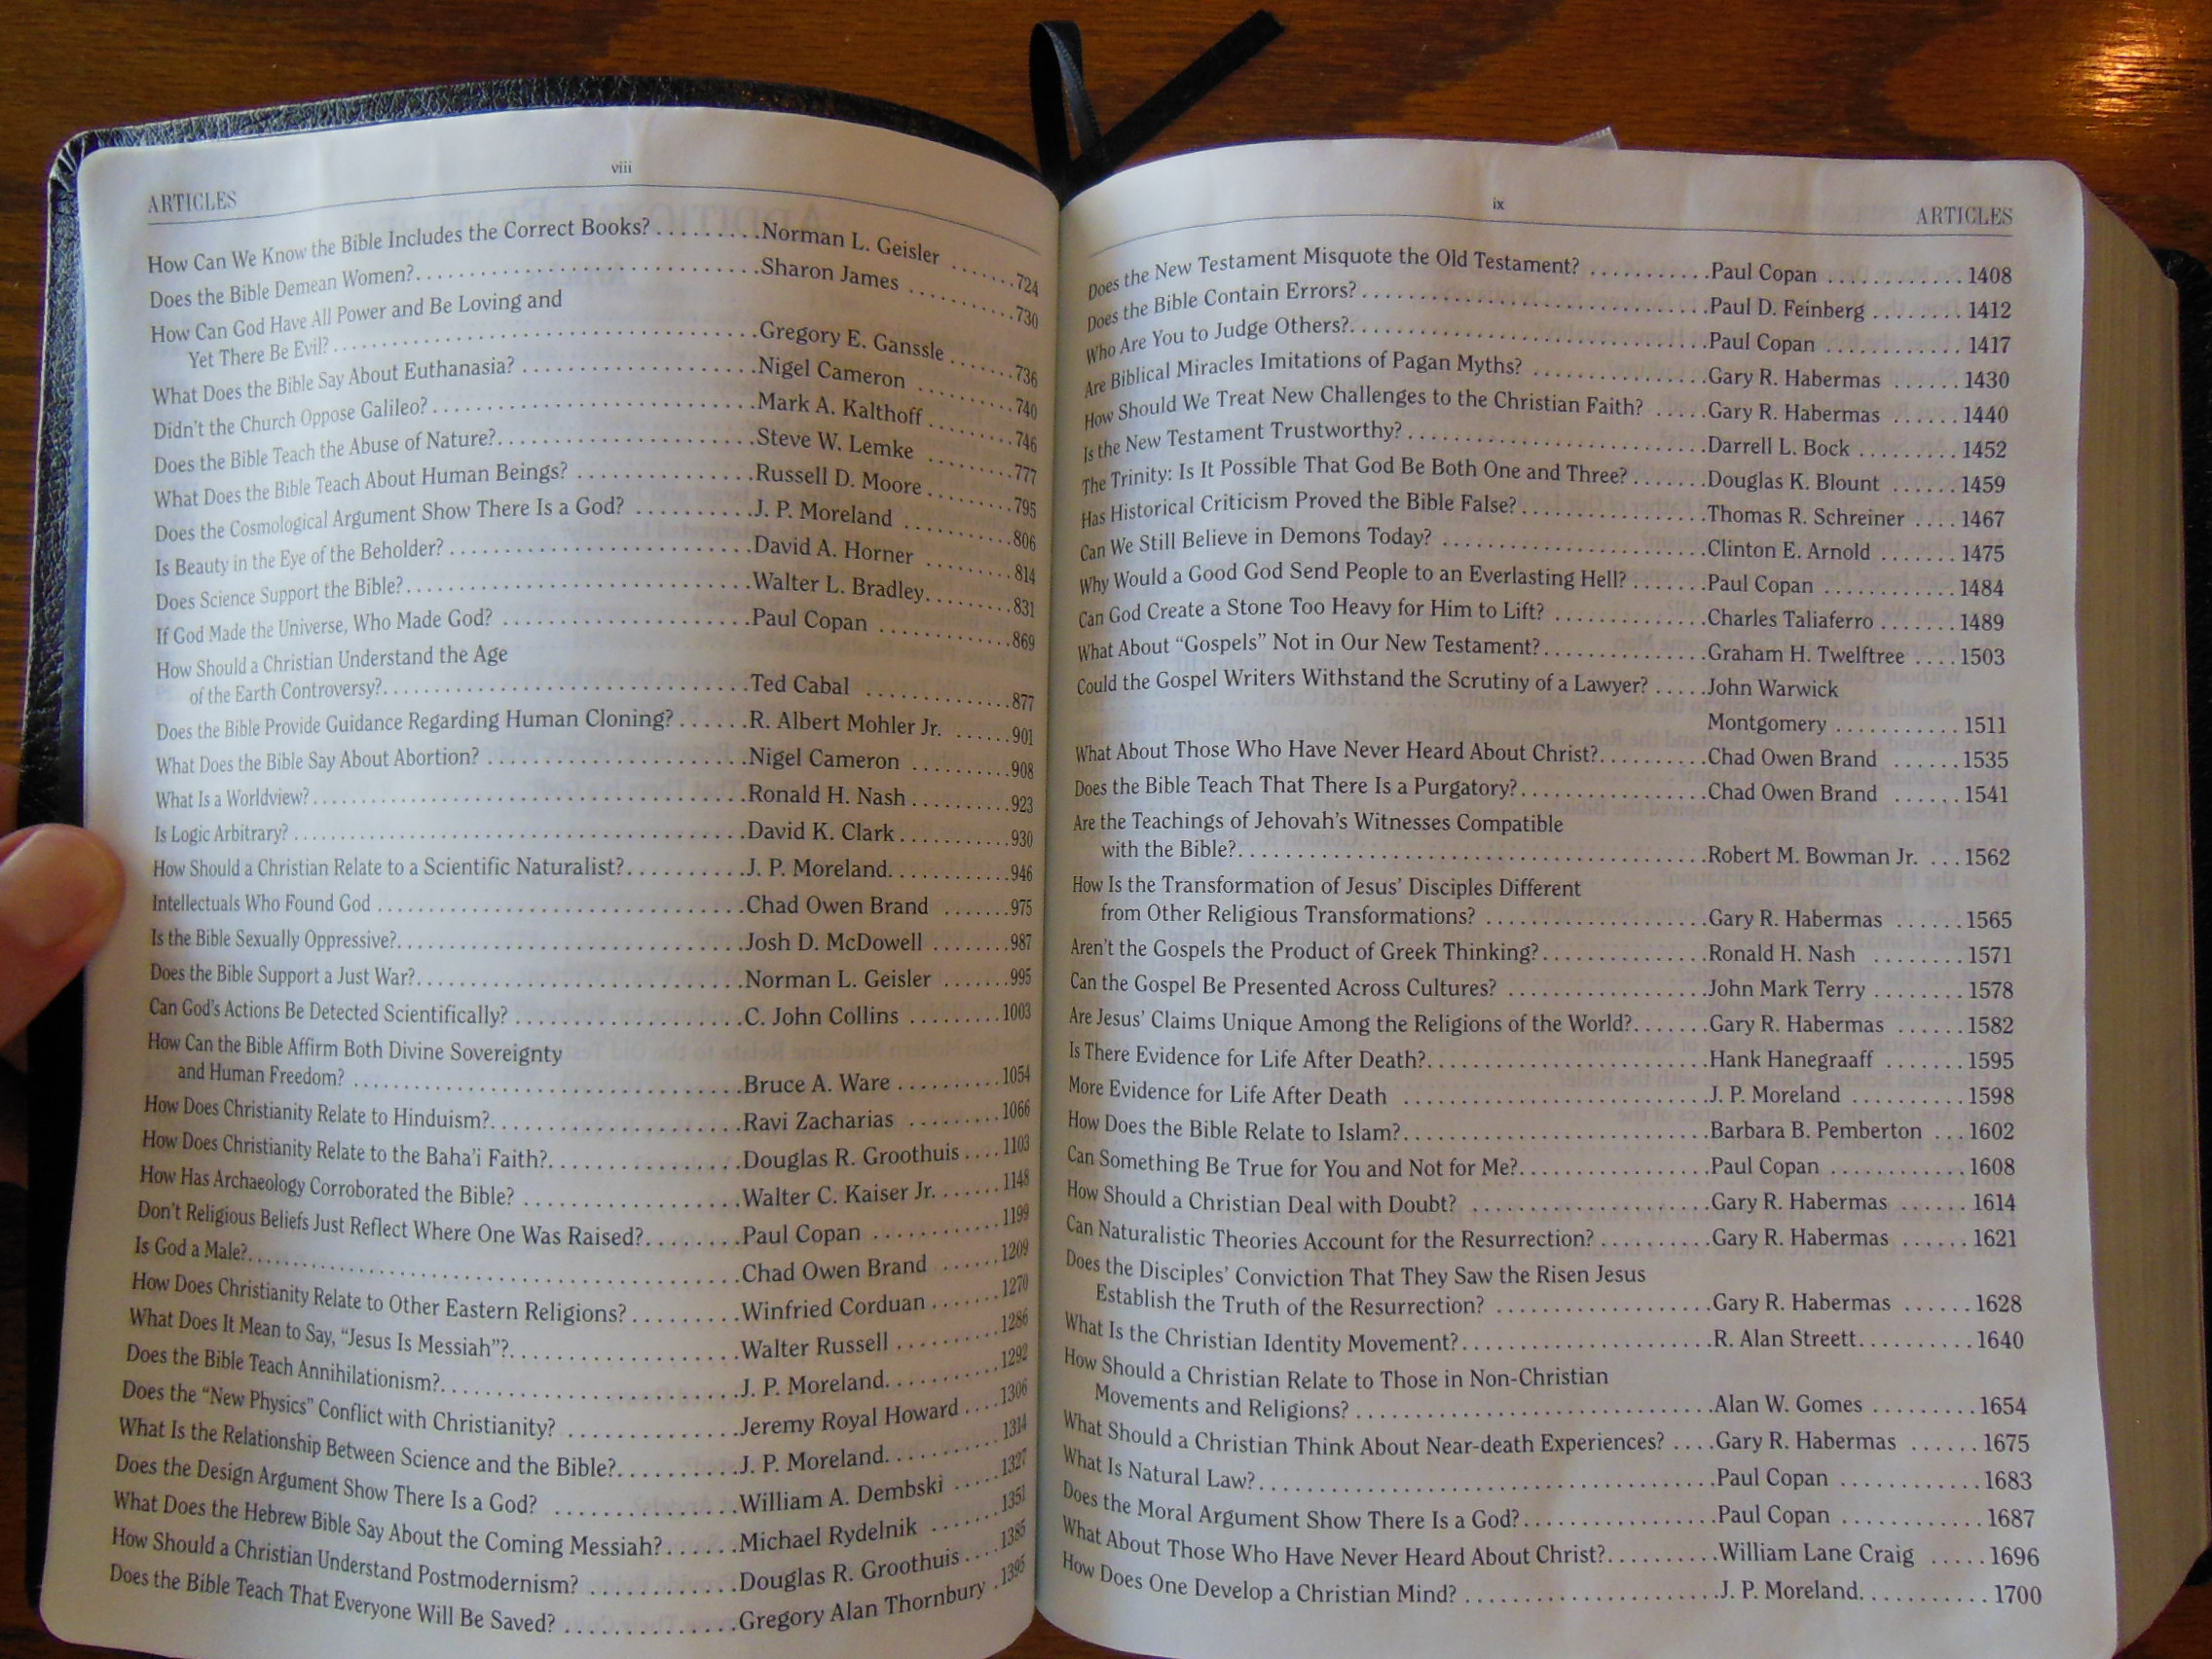 viii
ARTICLES
How Can We Know the Bible Includes the Correct Books? . . . . . . . . .Norman L. Geisler . . . . . . .724
Does the Bible Demean Women?. . . . . . . . . . . . . . . . . . . . . . . . . . . . .Sharon James . . . . . . . . . . .730
How Can God Have All Power and Be Loving and
Yet There Be Evil? . . . . . . . . . . . . . . . . . . . . . . . . . . . . . . . . . . . .Gregory E. Ganssle . . . . . . .736
What Does the Bible Say About Euthanasia? . . . . . . . . . . . . . . . . . . . .Nigel Cameron . . . . . . . . . .740
Didn't the Church Oppose Galileo? . . . . . . . . . . . . . . . . . . . . . . . . . . .Mark A. Kalthoff . . . . . . . . .746
Does the Bible Teach the Abuse of Nature?. . . . . . . . . . . . . . . . . . . . . .Steve W. Lemke . . . . . . . . .777
What Does the Bible Teach About Human Beings? . . . . . . . . . . . . . . .Russell D. Moore . . . . . . . .795
Does the Cosmological Argument Show There Is a God? . . . . . . . . . .J. P. Moreland . . . . . . . . . . .806
Is Beauty in the Eye of the Beholder? . . . . . . . . . . . . . . . . . . . . . . . . . .David A. Horner . . . . . . . . .814
Does Science Support the Bible?. . . . . . . . . . . . . . . . . . . . . . . . . . . . . .Walter L. Bradley. . . . . . . . .831
If God Made the Universe, Who Made God? . . . . . . . . . . . . . . . . . . . . .Paul Copan . . . . . . . . . . . . .869
How Should a Christian Understand the Age
of the Earth Controversy?. . . . . . . . . . . . . . . . . . . . . . . . . . . . . . .Ted Cabal . . . . . . . . . . . . . .877
Does the Bible Provide Guidance Regarding Human Cloning? . . . . . .R. Albert Mohler Jr. . . . . . .901
What Does the Bible Say About Abortion? . . . . . . . . . . . . . . . . . . . . . .Nigel Cameron . . . . . . . . . .908
What Is a Worldview? . . . . . . . . . . . . . . . . . . . . . . . . . . . . . . . . . . . . . .Ronald H. Nash . . . . . . . . . .923
Is Logic Arbitrary? . . . . . . . . . . . . . . . . . . . . . . . . . . . . . . . . . . . . . . . .David K. Clark . . . . . . . . . . .930
How Should a Christian Relate to a Scientific Naturalist?. . . . . . . . . .J. P. Moreland. . . . . . . . . . . .946
Intellectuals Who Found God . . . . . . . . . . . . . . . . . . . . . . . . . . . . . . .Chad Owen Brand . . . . . . .975
Is the Bible Sexually Oppressive?. . . . . . . . . . . . . . . . . . . . . . . . . . . . .Josh D. McDowell . . . . . . . .987
Does the Bible Support a Just War?. . . . . . . . . . . . . . . . . . . . . . . . . . . .Norman L. Geisler . . . . . . .995
Can God's Actions Be Detected Scientifically? . . . . . . . . . . . . . . . . . . .C. John Collins . . . . . . . . .1003
How Can the Bible Affirm Both Divine Sovereignty
and Human Freedom? . . . . . . . . . . . . . . . . . . . . . . . . . . . . . . . . .Bruce A. Ware . . . . . . . . . .1054
How Does Christianity Relate to Hinduism?. . . . . . . . . . . . . . . . . . . . .Ravi Zacharias . . . . . . . . .1066
How Does Christianity Relate to the Baha'i Faith?. . . . . . . . . . . . . . . .Douglas R. Groothuis . . . .1103
How Has Archaeology Corroborated the Bible? . . . . . . . . . . . . . . . . . .Walter C. Kaiser Jr. . . . . . .1148
Don't Religious Beliefs Just Reflect Where One Was Raised?. . . . . . . .Paul Copan . . . . . . . . . . . .1199
Is God a Male?. . . . . . . . . . . . . . . . . . . . . . . . . . . . . . . . . . . . . . . . . . .Chad Owen Brand . . . . . .1209
How Does Christianity Relate to Other Eastern Religions? . . . . . . . . .Winfried Corduan . . . . . . .1270
What Does It Mean to Say, "Jesus Is Messiah"?. . . . . . . . . . . . . . . . . . .Walter Russell . . . . . . . . . .1286
Does the Bible Teach Annihilationism?. . . . . . . . . . . . . . . . . . . . . . . . .J. P. Moreland. . . . . . . . . . .1292
Does the "New Physics" Conflict with Christianity? . . . . . . . . . . . . . .Jeremy Royal Howard . . . .1306
What Is the Relationship Between Science and the Bible?. . . . . . . . . .J. P. Moreland. . . . . . . . . . .1314
Does the Design Argument Show There Is a God? . . . . . . . . . . . . . . .William A. Dembski . . . . .1327
What Does the Hebrew Bible Say About the Coming Messiah? . . . . . .Michael Rydelnik . . . . . . .1351
How Should a Christian Understand Postmodernism? . . . . . . . . . . . .Douglas R. Groothuis . . . .1385
Does the Bible Teach That Everyone Will Be Saved? . . . . . . . . . . . . . .Gregory Alan Thornbury .1395
ix
ARTICLES
Does the New Testament Misquote the Old Testament? . . . . . . . . . . .Paul Copan . . . . . . . . . . . .1408
Does the Bible Contain Errors?. . . . . . . . . . . . . . . . . . . . . . . . . . . . . . .Paul D. Feinberg . . . . . . . .1412
Who Are You to Judge Others?. . . . . . . . . . . . . . . . . . . . . . . . . . . . . . . .Paul Copan . . . . . . . . . . . .1417
Are Biblical Miracles Imitations of Pagan Myths? . . . . . . . . . . . . . . . .Gary R. Habermas . . . . . .1430
How Should We Treat New Challenges to the Christian Faith? . . . . .Gary R. Habermas . . . . . .1440
Is the New Testament Trustworthy? . . . . . . . . . . . . . . . . . . . . . . . . . . .Darrell L. Bock . . . . . . . . .1452
The Trinity: Is It Possible That God Be Both One and Three? . . . . . . .Douglas K. Blount . . . . . .1459
Has Historical Criticism Proved the Bible False?. . . . . . . . . . . . . . . . . .Thomas R. Schreiner . . . .1467
Can We Still Believe in Demons Today? . . . . . . . . . . . . . . . . . . . . . . . .Clinton E. Arnold . . . . . . .1475
Why Would a Good God Send People to an Everlasting Hell? . . . . . . .Paul Copan . . . . . . . . . . . .1484
Can God Create a Stone Too Heavy for Him to Lift? . . . . . . . . . . . . . .Charles Taliaferro . . . . . . .1489
What About "Gospels" Not in Our New Testament?. . . . . . . . . . . . . . .Graham H. Twelftree . . . .1503
Could the Gospel Writers Withstand the Scrutiny of a Lawyer? . . . . .John Warwick
Montgomery . . . . . . . . . . .1511
What About Those Who Have Never Heard About Christ?. . . . . . . . . .Chad Owen Brand . . . . . .1535
Does the Bible Teach That There Is a Purgatory?. . . . . . . . . . . . . . . . .Chad Owen Brand . . . . . .1541
Are the Teachings of Jehovah's Witnesses Compatible
with the Bible?. . . . . . . . . . . . . . . . . . . . . . . . . . . . . . . . . . . . . . . .Robert M. Bowman Jr. . . .1562
How Is the Transformation of Jesus' Disciples Different
from Other Religious Transformations? . . . . . . . . . . . . . . . . . . .Gary R. Habermas . . . . . .1565
Aren't the Gospels the Product of Greek Thinking?. . . . . . . . . . . . . . .Ronald H. Nash . . . . . . . .1571
Can the Gospel Be Presented Across Cultures? . . . . . . . . . . . . . . . . . .John Mark Terry . . . . . . . .1578
Are Jesus' Claims Unique Among the Religions of the World?. . . . . . .Gary R. Habermas . . . . . .1582
Is There Evidence for Life After Death?. . . . . . . . . . . . . . . . . . . . . . . . .Hank Hanegraaff . . . . . . .1595
More Evidence for Life After Death . . . . . . . . . . . . . . . . . . . . . . . . . . .J. P. Moreland . . . . . . . . . .1598
How Does the Bible Relate to Islam?. . . . . . . . . . . . . . . . . . . . . . . . . . .Barbara B. Pemberton . . .1602
Can Something Be True for You and Not for Me?. . . . . . . . . . . . . . . . .Paul Copan . . . . . . . . . . . .1608
How Should a Christian Deal with Doubt? . . . . . . . . . . . . . . . . . . . . .Gary R. Habermas . . . . . .1614
Can Naturalistic Theories Account for the Resurrection? . . . . . . . . . .Gary R. Habermas . . . . . .1621
Does the Disciples' Conviction That They Saw the Risen Jesus
Establish the Truth of the Resurrection? . . . . . . . . . . . . . . . . . .Gary R. Habermas . . . . . .1628
What Is the Christian Identity Movement?. . . . . . . . . . . . . . . . . . . . . .R. Alan Streett. . . . . . . . . .1640
How Should a Christian Relate to Those in Non-Christian
Movements and Religions? . . . . . . . . . . . . . . . . . . . . . . . . . . . . . .Alan W. Gomes . . . . . . . . .1654
What Should a Christian Think About Near-death Experiences? . . . .Gary R. Habermas . . . . . .1675
What Is Natural Law?. . . . . . . . . . . . . . . . . . . . . . . . . . . . . . . . . . . . . . .Paul Copan . . . . . . . . . . . .1683
Does the Moral Argument Show There Is a God?. . . . . . . . . . . . . . . . .Paul Copan . . . . . . . . . . . .1687
What About Those Who Have Never Heard About Christ?. . . . . . . . . .William Lane Craig . . . . .1696
How Does One Develop a Christian Mind? . . . . . . . . . . . . . . . . . . . . . .J. P. Moreland. . . . . . . . . . .1700